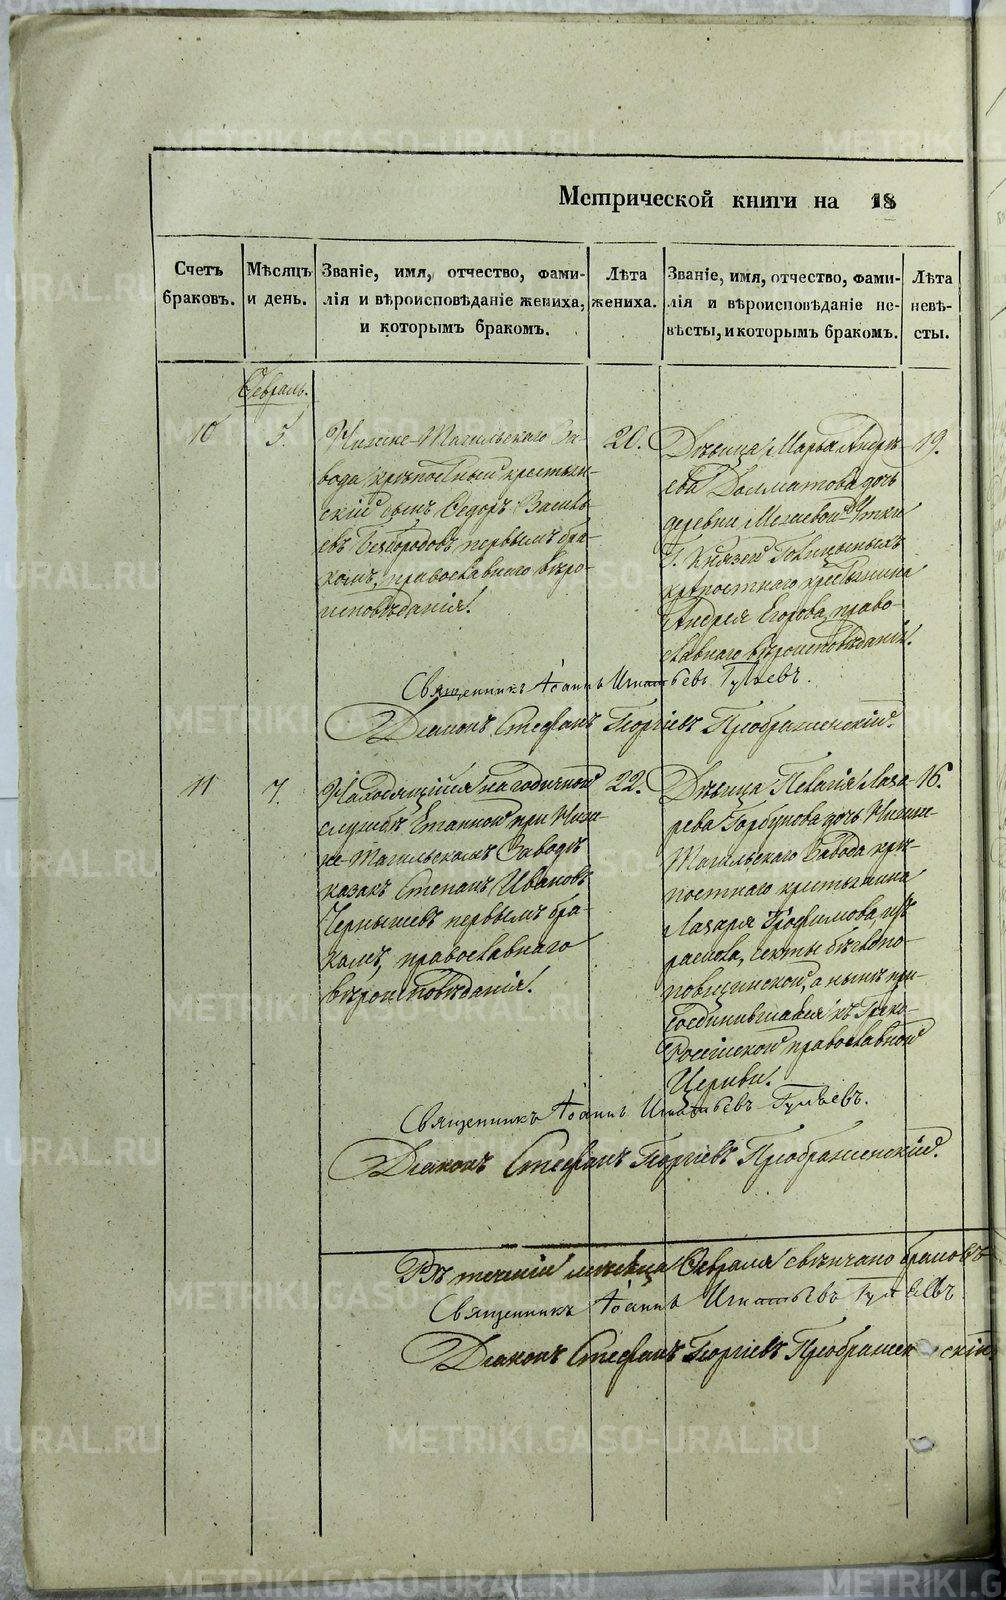 METRIKI.GASO-URAL.RU
Метрической книги на 18
Счетъ браковъ.
Мѣсяцъ и день.
Званіе, имя, отчество, фами-
лія и вѣроисповѣданіе жениха,
и которымъ бракомъ.
Лѣта жениха.
Званіе, имя, отчество, фами-
лія и вѣроисповѣданіе не-
вѣсты, и которымъ бракомъ.
Лѣта невѣ-
сты.
Февраль.
10
5.
Нижне-Тагильскаго За-
вода крѣпостный крестьян-
скій сынъ Ѳедоръ Василь
евъ Безбородовъ первымъ бра-
комъ, православнаго вѣро-
исповѣданія.
20.
Дѣвица Марья Андрѣ-
ева Долматова дочь
деревни Утки
Г. Князей Голицыныхъ
крѣпостнаго крестьянина
Андрея Егорова, право-
славнаго вѣроисповѣданія.
19.
Священникъ Іоаннъ Игнатьевъ
Діаконъ Стефанъ Георгіевъ Преображенскій.
11
7.
Находящійся на годичной
службѣ Етапной при Ниж-
не-Тагильскомъ Заводѣ
казакъ Степанъ Ивановъ
Чернышевъ первымъ бра-
комъ, православнаго
вѣроисповѣданія.
22.
Дѣвица Пелагія Лаза-
рева Горбунова дочь Нижне-
Тагильскаго Завода крѣ-
постнаго крестьянина
Лазаря Трофимова, изъ
раскола, секты бѣглопо-
повщинской, а нынѣ при-
соединившаяся къ Греко-
Россійской православной
Церкви.
16.
Священникъ Іоаннъ Игнатьевъ
Діаконъ Стефанъ Георгіевъ Преображенскій.
Въ теченіи мѣсяца Февраля свѣнчано браковъ
Священникъ Іоаннъ Игнатьевъ
Діаконъ Стефанъ Георгіевъ Преображенскій